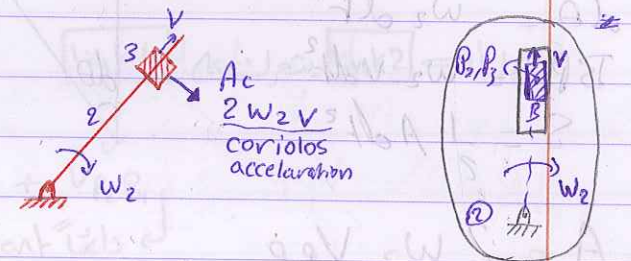 V
3
Ac
2 W2 V
coriolos
accelaration
2
W2
P2, P3
V
B
W2
2